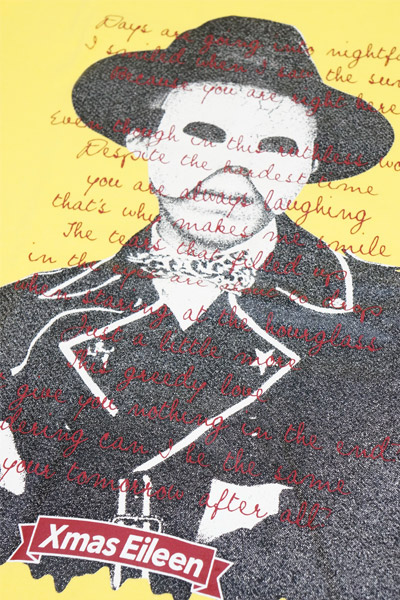 Days are going into nightfa
I smiled when I saw the sun
because you are right here
Even though in this ruthless wo
Despite the hardest time
you are always laughing
that's why makes me smile
The tears that filled up
in the eyes are to drop
when staring at the hourglass
Just a little more
This greedy love
give you nothing in the end
can I be the same
your tomorrow after all
Xmas Eileen